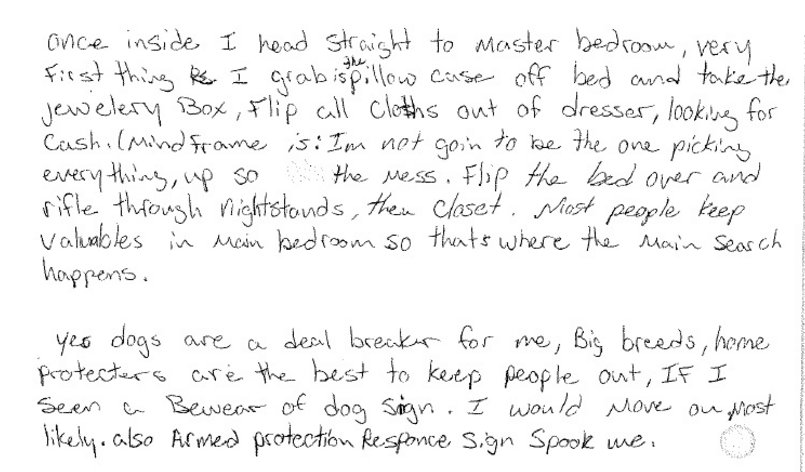 once inside I head straight to Master bedroom, very
First thing I grab is the pillow case off bed and take the
jewelery Box, Flip all Cloths out of dresser, looking for
Cash. (Mind Frame is: Im not goin to be the one picking
everything, up so the mess. Flip the bed over and
rifle through nightstands, then Closet. Most people keep
Valuables in main bedroom so thats where the main search
happens.
yes dogs are a deal breaker for me, Big breeds, home
protecters are the best to keep people out, IF I
seen a Bewear of dog sign. I would move on most
likely. also Armed protection Responce Sign Spook me.